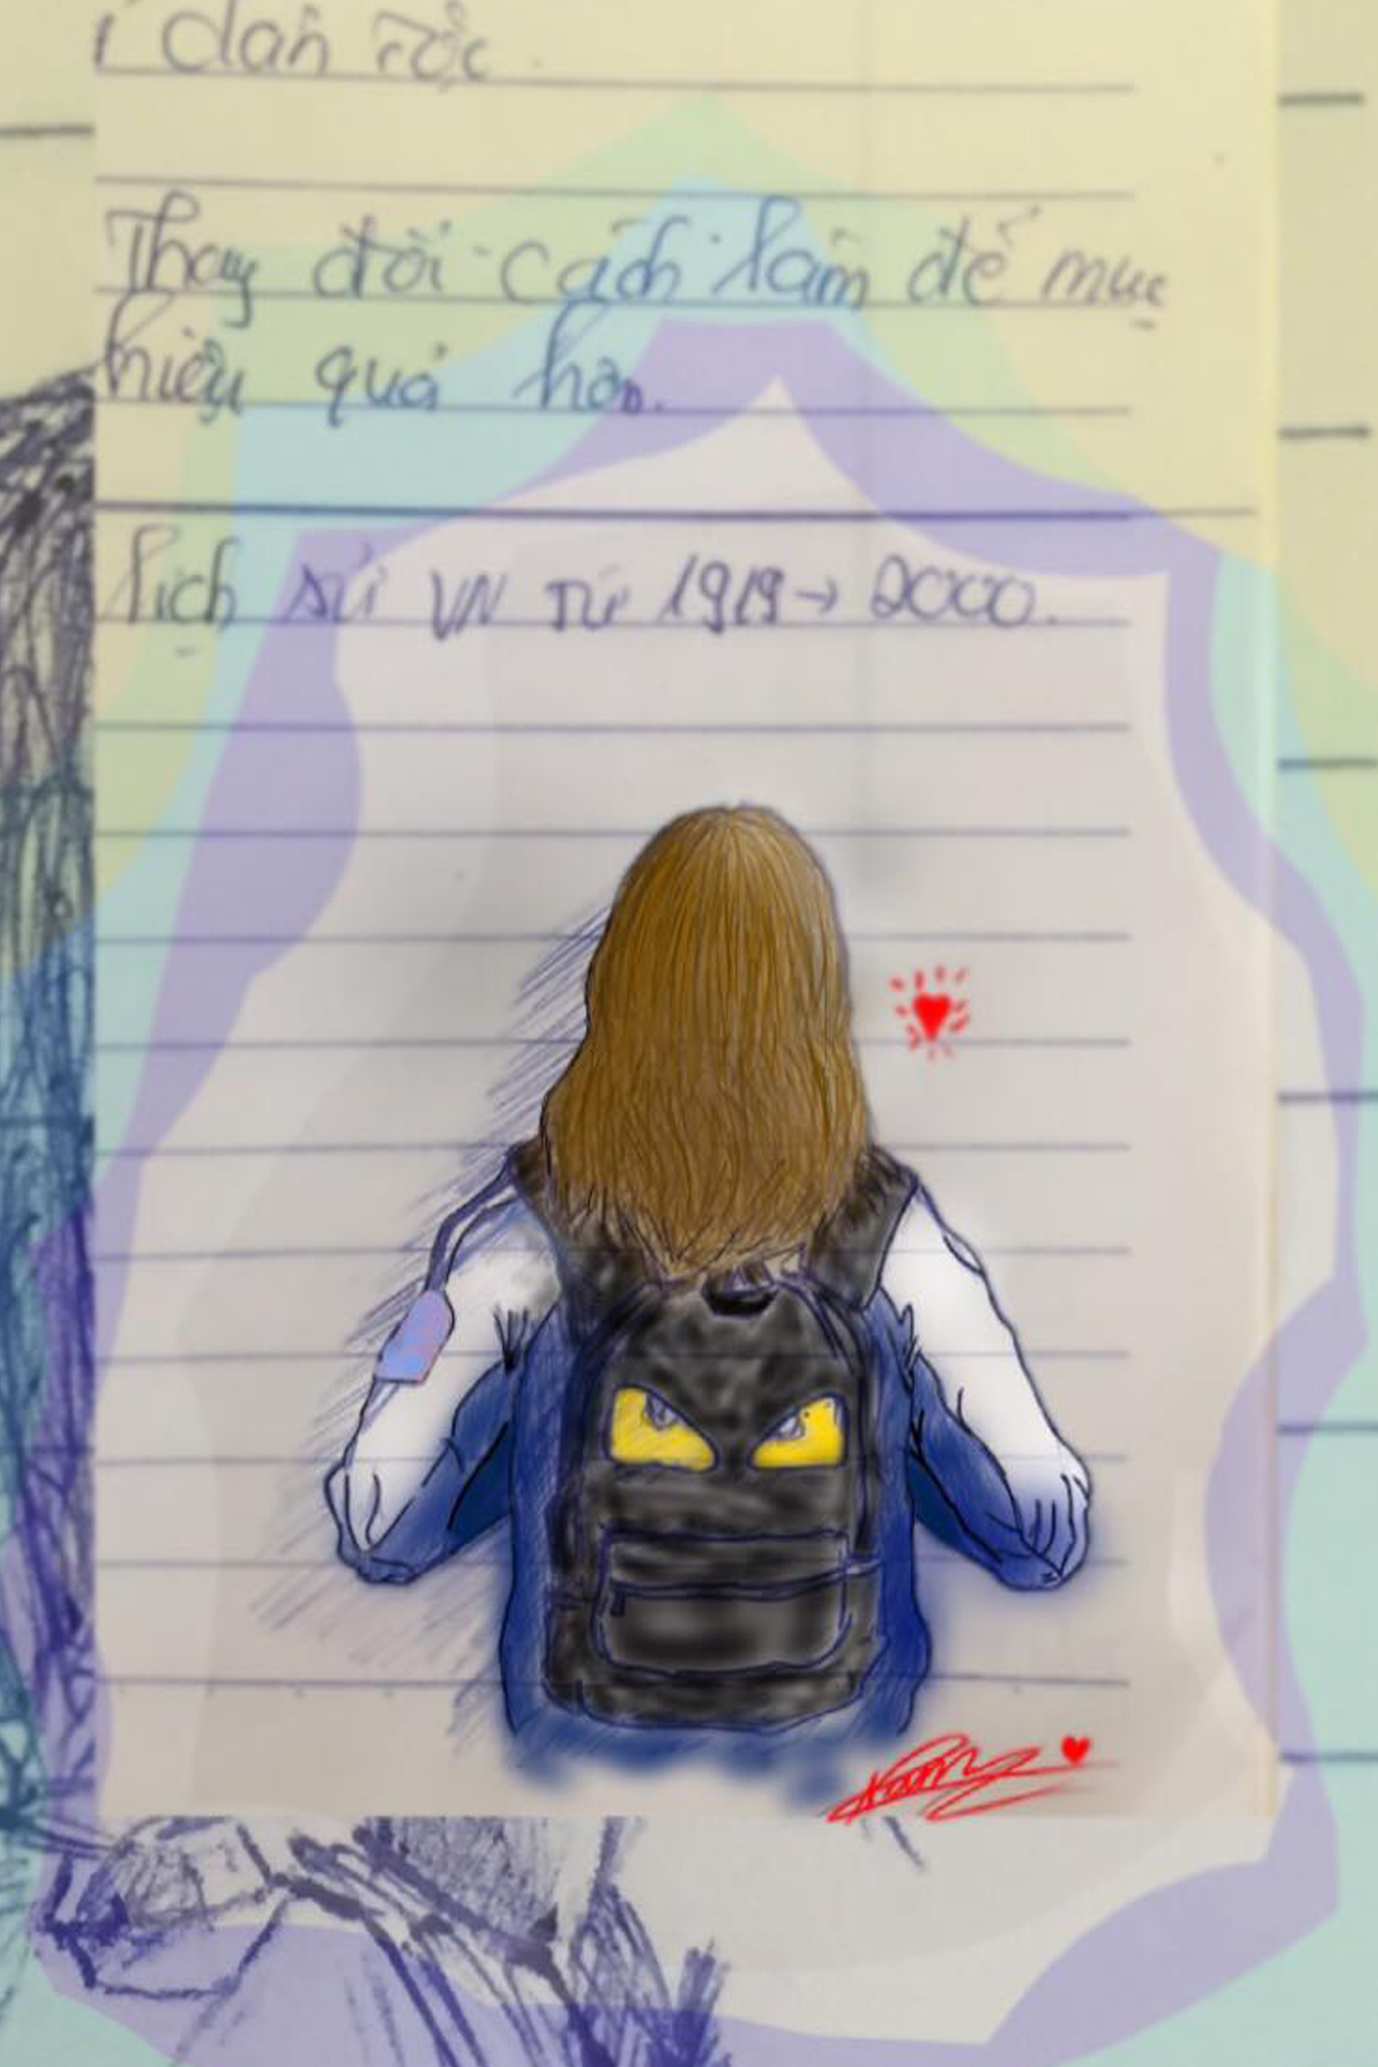 dân tộc.
Thay đổi cách làm để mục
hiệu quả hơn.
Lịch sử VN từ 1919 → 2000.